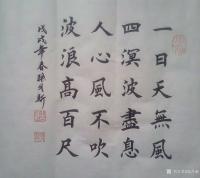 一日天無風
四溟波盡息
人心風不吹
波浪高百尺
戊戌年春